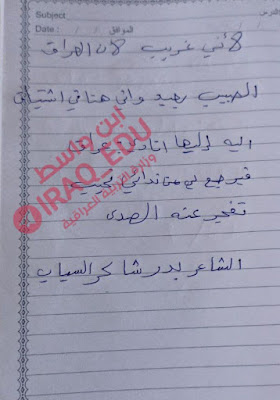 Subject:
Date: / /
الموافق
لأني غريب لأن العراق
الحبيب بعيد واني هنا في اشتياق
اليه إليها انادي عراق
فيرجع لي من ندائي نحيب
تفجر عنه الصدى
الشاعر بدر شاكر السياب
ابن واسط
IRAQ EDU
وزارة التربية العراقية